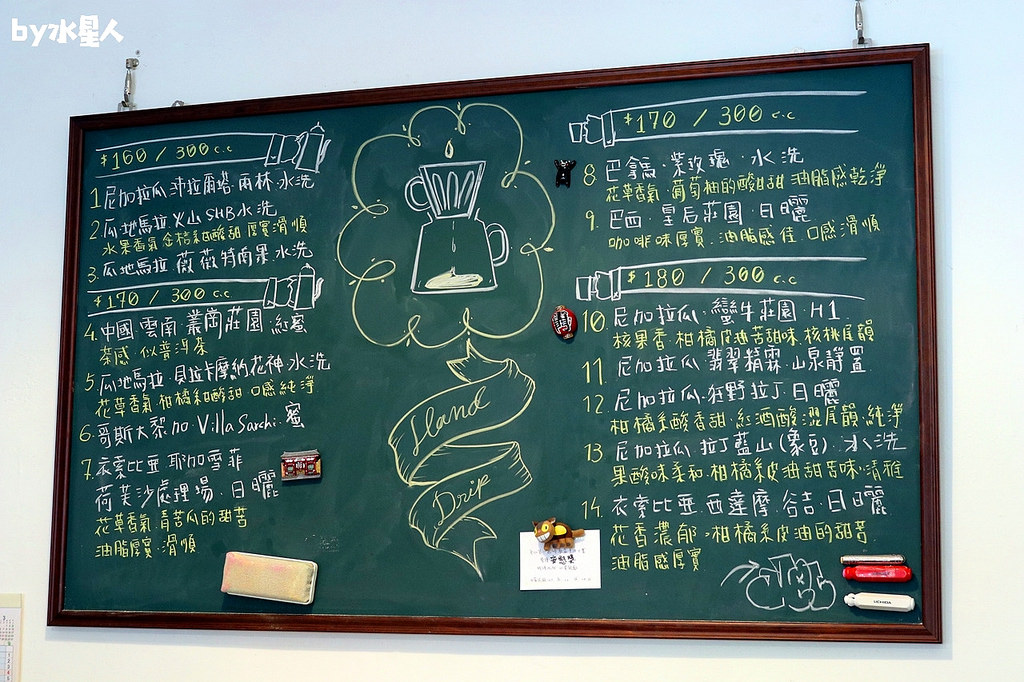 by水星人
$160 / 300 c.c
1 尼加拉瓜.沛拉爾塔.雨林.水洗
2.瓜地馬拉.火山SHB水洗
水果香氣.金桔系酸甜.厚實滑順
3.瓜地馬拉 薇薇特南果.水洗
$170 / 300 c.c
4.中國.雲南.叢崗莊園.紅蜜
茶感 似普洱茶
5.瓜地馬拉.貝拉卡摩納花神.水洗
花草香氣.柑橘系酸甜.口感純淨
6.哥斯大黎加.Villa Sarchi.蜜
7.衣索比亞.耶加雪菲
荷芙沙處理場.日曬
花草香氣.青苦瓜的甜苦
油脂厚實.滑順
Hand
Drip
$170 / 300 c.c
8 巴拿馬.紫玫瑰.水洗
花草香氣.葡萄柚的酸甜甜 油脂感乾淨
9.巴西.皇后莊園.日曬
咖啡味厚實.油脂感佳.口感滑順
$180 / 300 c.c
10.尼加拉瓜.蠻牛莊園.H1
核果香.柑橘皮油苦甜味.核桃尾韻
11.尼加拉瓜.翡翠精霖.山泉靜置
12.尼加拉瓜.狂野拉丁.日曬
柑橘系酸香甜.紅酒酸澀尾韻.純淨
13.尼加拉瓜.拉丁藍山(象豆).水洗
果酸味柔和.柑橘系皮油甜苦味.清雅
14.衣索比亞.西達摩.谷吉.日曬
花香濃郁,柑橘系皮油的甜苦
油脂感厚實
UCHIDA